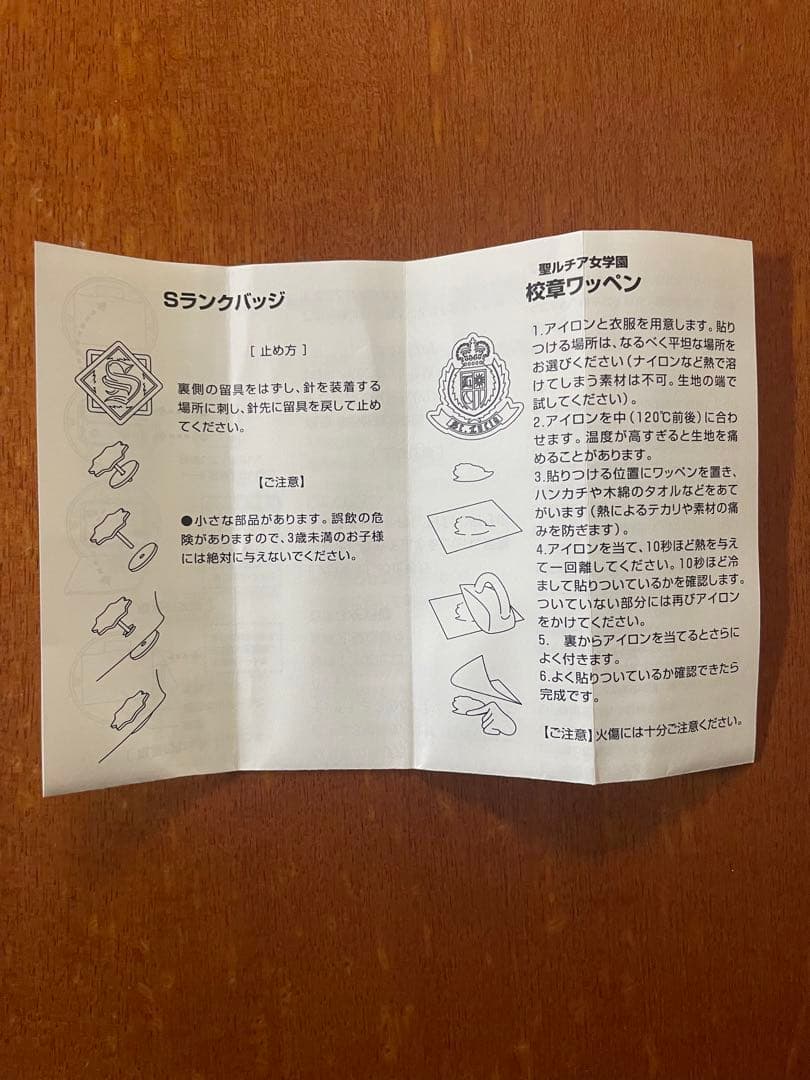 Sランクバッジ
[ 止め方 ]
裏側の留具をはずし、針を装着する
場所に刺し、針先に留具を戻して止め
てください。
【ご注意】
●小さな部品があります。誤飲の危
険がありますので、3歳未満のお子様
には絶対に与えないでください。
聖ルチア女学園
校章ワッペン
1.アイロンと衣服を用意します。貼り
つける場所は、なるべく平坦な場所を
お選びください(ナイロンなど熱で溶
けてしまう素材は不可。生地の端で
試してください)。
2.アイロンを中(120℃前後)に合わ
せます。温度が高すぎると生地を痛
めることがあります。
3.貼りつける位置にワッペンを置き、
ハンカチや木綿のタオルなどをあて
がいます(熱によるテカリや素材の痛
みを防ぎます)。
4.アイロンを当て、10秒ほど熱を与え
て一回離してください。10秒ほど冷
まして貼りついているかを確認します。
ついていない部分には再びアイロン
をかけてください。
5. 裏からアイロンを当てるとさらに
よく付きます。
6.よく貼りついているか確認できたら
完成です。
【ご注意】火傷には十分ご注意ください。
S
ST. LUCIA